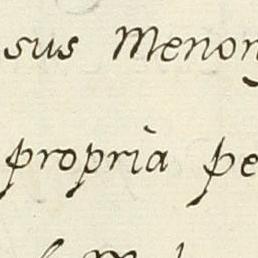 sus Menon
proprià pe